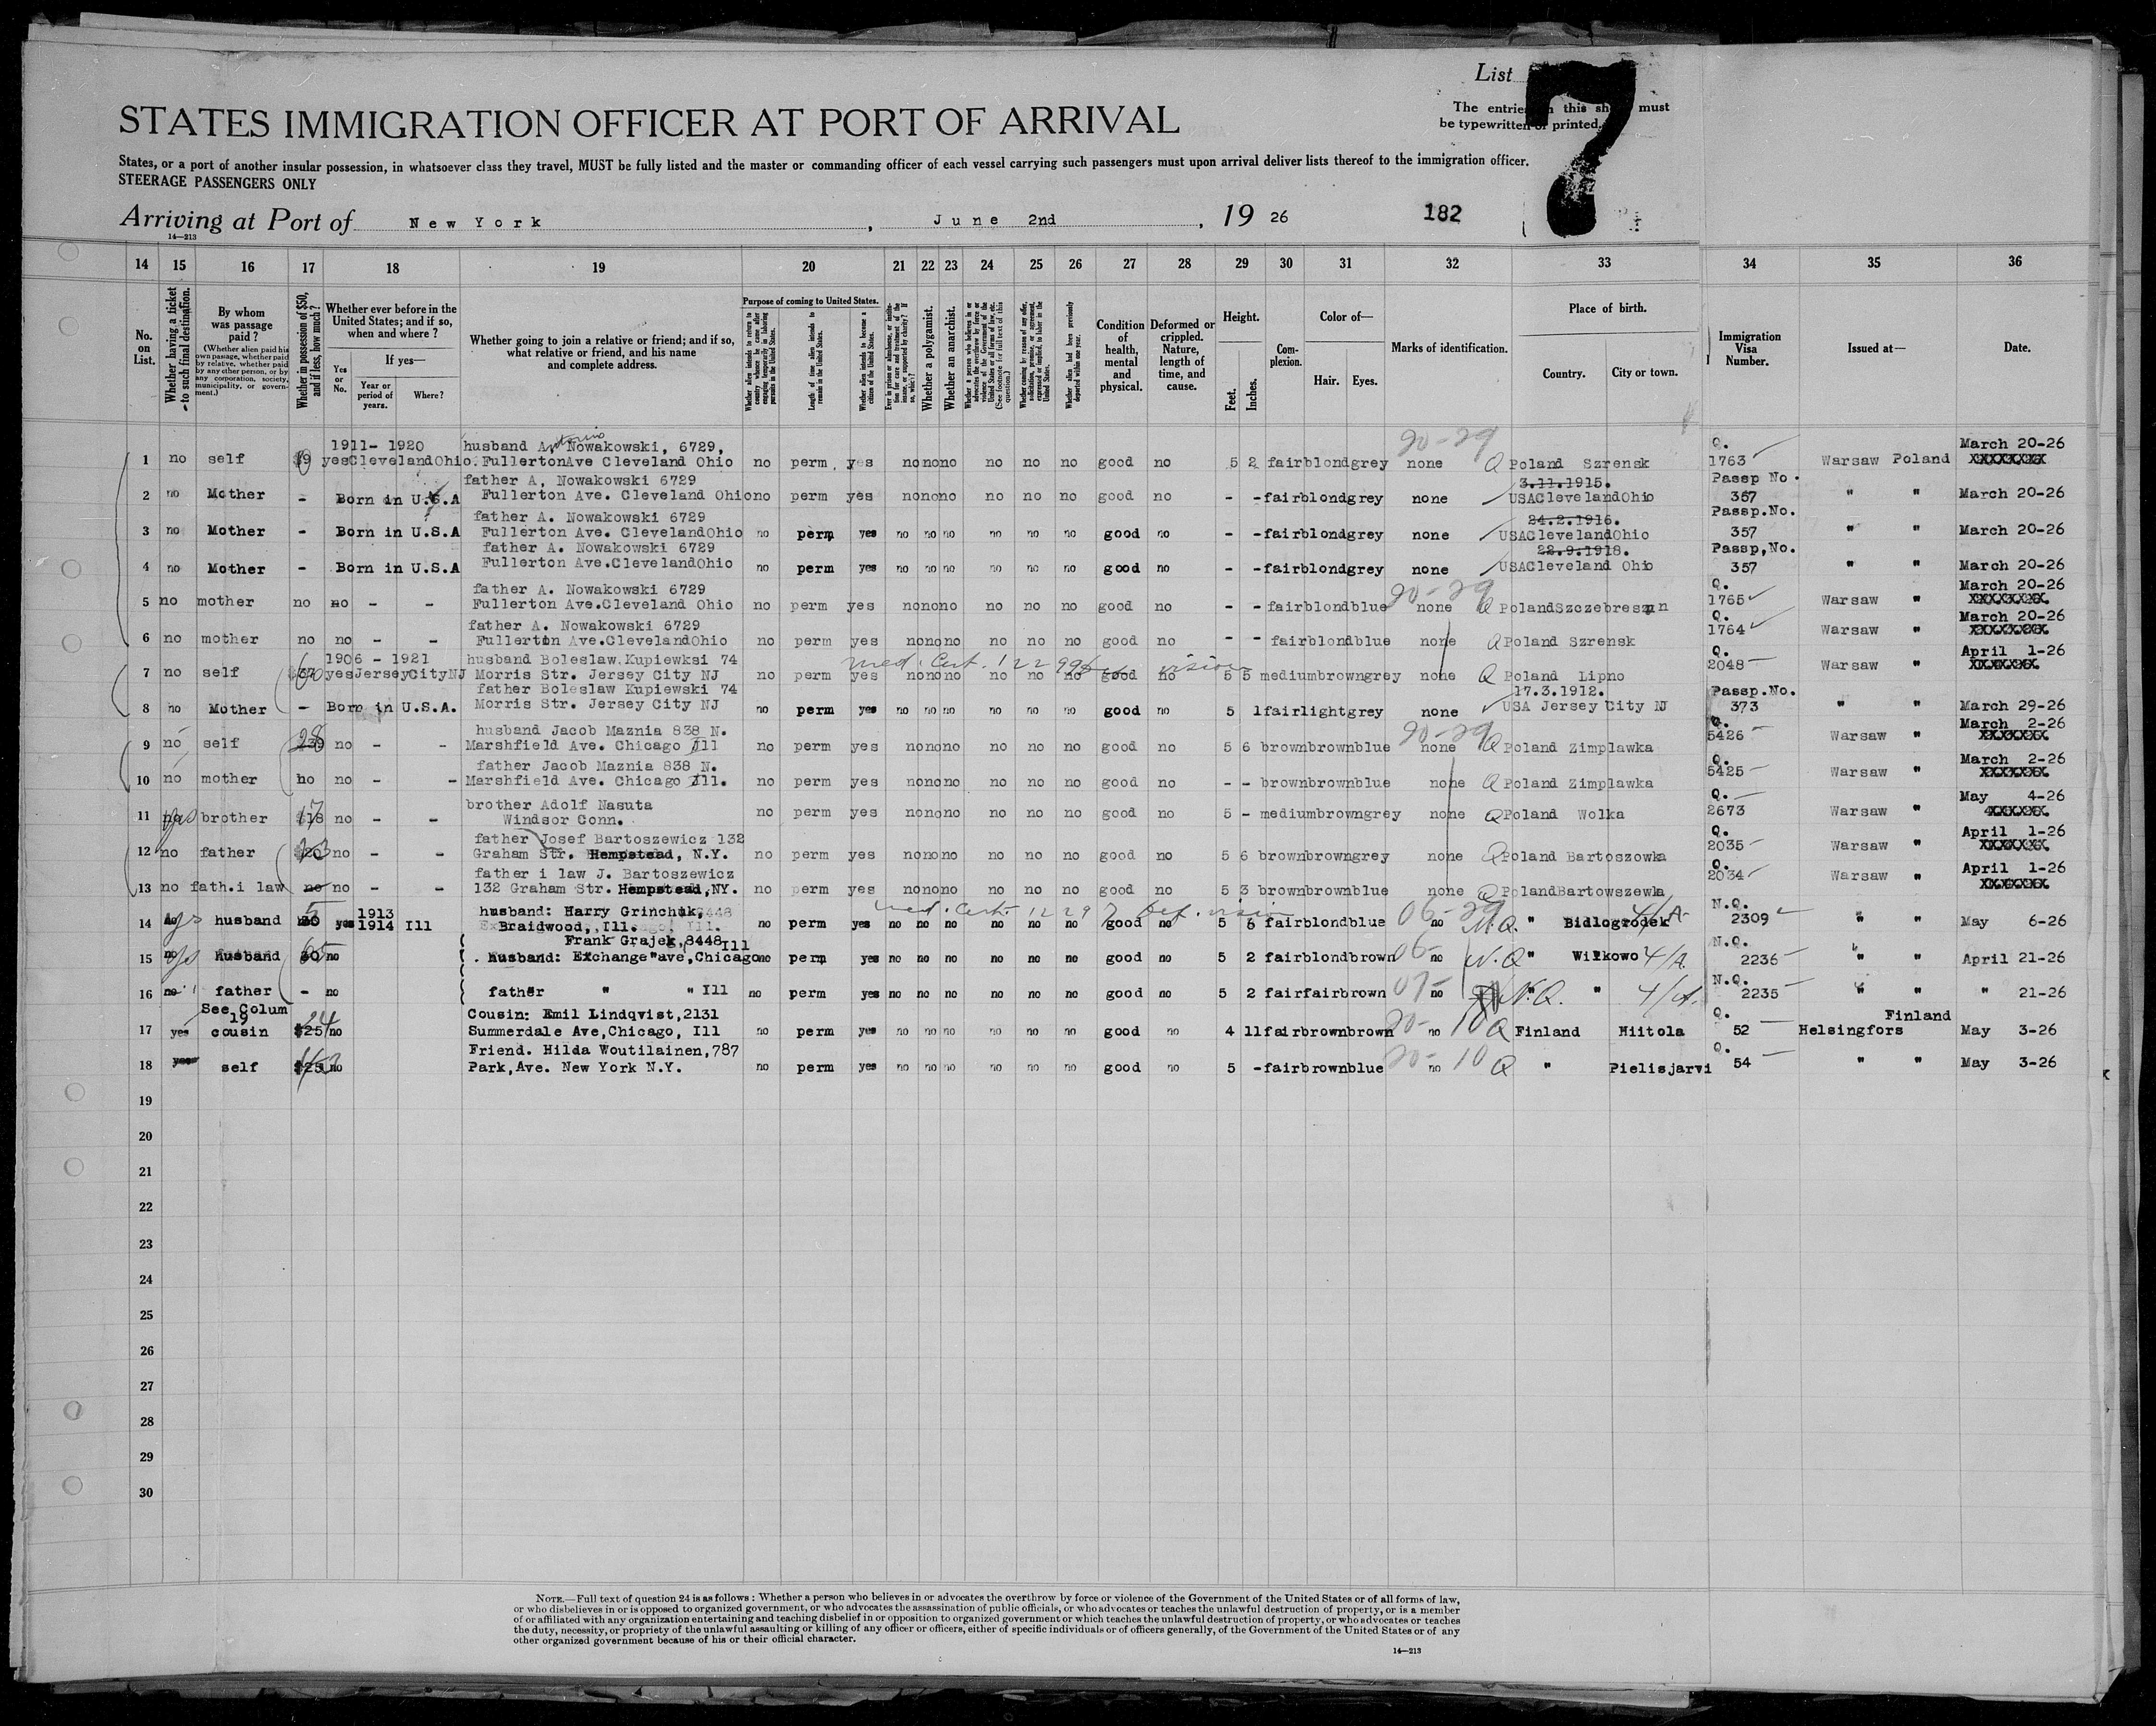 List 7
The entries in this sheet must
be typewritten or printed.
STATES IMMIGRATION OFFICER AT PORT OF ARRIVAL
States, or a port of another insular possession, in whatsoever class they travel, MUST be fully listed and the master or commanding officer of each vessel carrying such passengers must upon arrival deliver lists thereof to the immigration officer.
STEERAGE PASSENGERS ONLY
Arriving at Port of New York, June 2nd, 19 26 182
14—213
14 15 16 17 18 19 20 21 22 23 24 25 26 27 28 29 30 31 32 33 34 35 36
No. on List.
Whether having a ticket to such final destination.
By whom was passage paid?
(Whether alien paid his own passage, whether paid by relative, whether paid by any other person, or by any corporation, society, municipality, or government.)
Whether in possession of $50, and if less, how much?
Whether ever before in the United States; and if so, when and where?
Yes or No.
If yes—
Year or period of years.
Where?
Whether going to join a relative or friend; and if so, what relative or friend, and his name and complete address.
Purpose of coming to United States.
Whether alien intends to return to country whence he came after engaging temporarily in laboring pursuits in the United States.
Length of time alien intends to remain in the United States.
Whether alien intends to become a citizen of the United States.
Ever in prison or almshouse, or institution for care and treatment of the insane, or supported by charity? If so, which?
Whether a polygamist.
Whether an anarchist.
Whether a person who believes in or advocates the overthrow by force or violence of the Government of the United States or all forms of law, etc. (See footnote for full text of this question.)
Whether coming by reason of any offer, solicitation, promise, or agreement, expressed or implied, to labor in the United States.
Whether alien had been previously deported within one year.
Condition of health, mental and physical.
Deformed or crippled. Nature, length of time, and cause.
Height.
Feet. Inches.
Complexion.
Color of—
Hair. Eyes.
Marks of identification.
Place of birth.
Country. City or town.
Immigration Visa Number.
Issued at—
Date.
1911- 1920 husband A. Antonio Nowakowski, 6729, 20-29 Q. March 20-26
1 no self 19 yes Cleveland Ohio. Fullerton Ave Cleveland Ohio no perm. yes no no no no no no good no 5 2 fair blond grey none Q Poland Szrensk 1763 Warsaw Poland
father A, Nowakowski 6729 3.11.1915. Passp No.
2 no Mother - Born in U.S.A Fullerton Ave. Cleveland Ohio no perm yes no no no no no no good no - - fair blond grey none USA Cleveland Ohio 357 " " March 20-26
father A. Nowakowski 6729 24.2.1916. Passp.No.
3 no Mother - Born in U.S.A Fullerton Ave. Cleveland Ohio no perm yes no no no no no no good no - - fair blond grey none USA Cleveland Ohio 357 " " March 20-26
father A. Nowakowski 6729 22.9.1918. Passp,No.
4 no Mother - Born in U.S.A Fullerton Ave. Cleveland Ohio no perm yes no no no no no no good no - - fair blond grey none USA Cleveland Ohio 357 " " March 20-26
father A. Nowakowski 6729 20-29 Q. March 20-26
5 no mother no no - - Fullerton Ave. Cleveland Ohio no perm yes no no no no no no good no - - fair blond blue none Q Poland 1765 Warsaw "
father A. Nowakowski 6729 Q. March 20-26
6 no mother no no - - Fullerton Ave. Cleveland Ohio no perm yes no no no no no no good no - - fair blond blue none Q Poland Szrensk 1764 Warsaw "
1906 - 1921 husband Boleslaw Kupiewksi 74 med. Cert. vision Q. April 1-26
7 no self yes Jersey City NJ Morris Str. Jersey City NJ no perm yes no no no no no no good no 5 5 medium brown grey none Q Poland Lipno 2048 Warsaw "
father Boleslaw Kupiewski 74 17.3.1912. Passp.No.
8 no Mother - Born in U.S.A. Morris Str. Jersey City NJ no perm yes no no no no no no good no 5 1 fair light grey none USA Jersey City NJ 373 " " March 29-26
husband Jacob Maznia 838 N. 20-29 Q. March 2-26
9 no self 28 no - - Marshfield Ave. Chicago Ill no perm yes no no no no no no good no 5 6 brown brown blue none Q Poland Zimplawka 5426 Warsaw "
father Jacob Maznia 838 N. Q. March 2-26
10 no mother no no - - Marshfield Ave. Chicago Ill. no perm yes no no no no no no good no - - brown brown blue none Q Poland Zimplawka 5425 Warsaw "
brother Adolf Nasuta Q. May 4-26
11 yes brother 17 no - - Windsor Conn. no perm yes no no no no no no good no 5 - medium brown grey none Q Poland Wolka 2673 Warsaw "
father Josef Bartoszewicz 132 Q. April 1-26
12 no father no - - Graham Str. Hempstead, N.Y. no perm yes no no no no no no good no 5 6 brown brown grey none Q Poland Bartoszowka 2035 Warsaw "
father i law J. Bartoszewicz Q. April 1-26
13 no fath.i law no no - - 132 Graham Str. Hempstead,NY. no perm yes no no no no no no good no 5 3 brown brown blue none Q Poland Bartowszewka 2034 Warsaw "
husband: Harry Grinchuk, med. Cert. def. vision 06-29 N.Q.
14 yes husband 5 yes 1913 1914 Ill Braidwood, Ill. no perm yes no no no no no no good no 5 6 fair blond blue no N.Q. " Bidlogrodek 4/A 2309 " " May 6-26
Frank Grajek, 8448 Ill 06- N.Q.
15 yes husband 65 no husband: Exchange "ave, Chicago no perm yes no no no no no no good no 5 2 fair blond brown no N.Q " Wilkowo 4/A. 2236 " " April 21-26
N.Q.
16 no father - no father " " Ill no perm yes no no no no no no good no 5 2 fair fair brown 07- no N.Q. " 4/A. 2235 " " " 21-26
See Colum 19 Cousin: Emil Lindqvist,2131 Q. Finland
17 yes cousin $25 24 no Summerdale Ave,Chicago, Ill no perm yes no no no no no no good no 4 11 fair brown brown 20- no 10 Q Finland Hiitola 52 Helsingfors May 3-26
Friend. Hilda Woutilainen,787 Q.
18 yes self $25 no Park,Ave. New York N.Y. no perm yes no no no no no no good no 5 - fair brown blue 20- no 10 Q " Pielisjarvi 54 " " May 3-26
19
20
21
22
23
24
25
26
27
28
29
30
NOTE.—Full text of question 24 is as follows: Whether a person who believes in or advocates the overthrow by force or violence of the Government of the United States or of all forms of law,
or who disbelieves in or is opposed to organized government, or who advocates the assassination of public officials, or who advocates or teaches the unlawful destruction of property, or is a member
of or affiliated with any organization entertaining and teaching disbelief in or opposition to organized government or which teaches the unlawful destruction of property, or who advocates or teaches
the duty, necessity, or propriety of the unlawful assaulting or killing of any officer or officers, either of specific individuals or of officers generally, of the Government of the United States or of any
other organized government because of his or their official character.
14—213